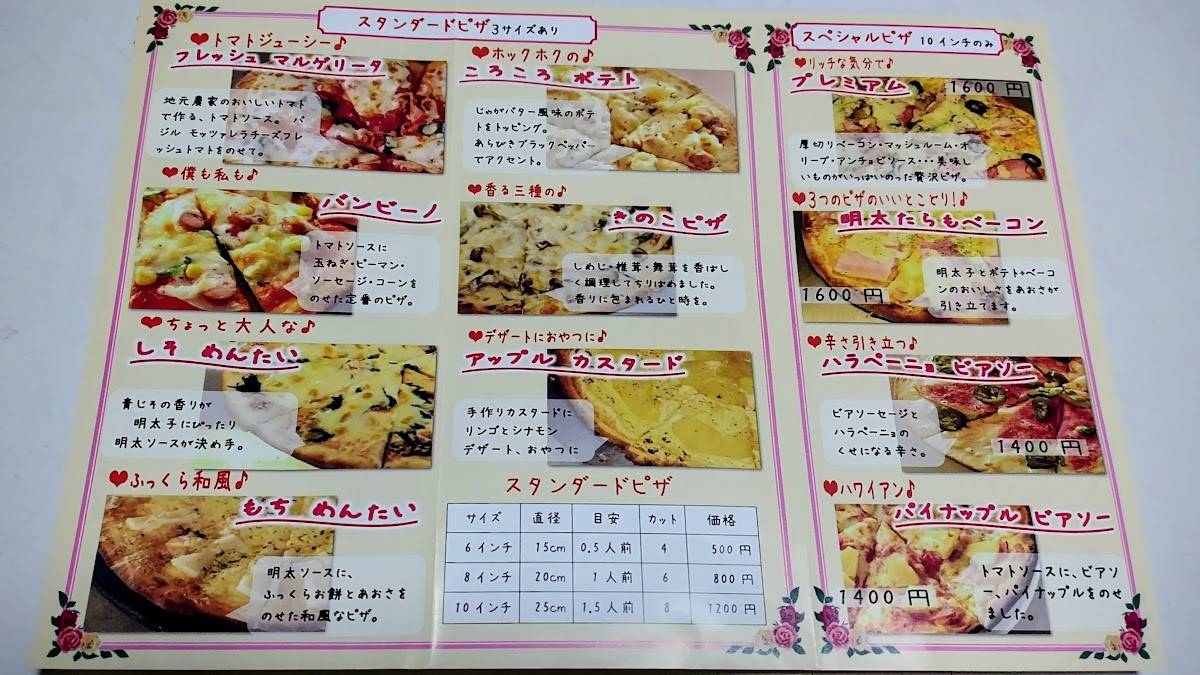 スタンダードピザ 3サイズあり
❤トマトジューシー♪
フレッシュ マルゲリータ
地元農家のおいしいトマト
で作る、トマトソース。バ
ジル モッツァレラチーズフレ
ッシュトマトをのせて。
❤僕も私も♪
バンビーノ
トマトソースに
玉ねぎ・ピーマン・
ソーセージ・コーンを
のせた定番のピザ。
❤ちょっと大人な♪
しそ めんたい
青じその香りが
明太子にぴったり
明太ソースが決め手。
❤ふっくら和風♪
もち めんたい
明太ソースに、
ふっくらお餅とあおさを
のせた和風なピザ。
❤ホックホクの♪
ころころ ポテト
じゃがバター風味のポテ
トをトッピング。
あらびきブラックペッパー
でアクセント。
❤香る三種の♪
きのこピザ
しめじ・椎茸・舞茸を香ばし
く調理してちりばめました。
香りに包まれるひと時を。
❤デザートにおやつに♪
アップル カスタード
手作りカスタードに
リンゴとシナモン
デザート、おやつに
スタンダードピザ
サイズ 直径 目安 カット 価格
6インチ 15cm 0.5人前 4 500円
8インチ 20cm 1人前 6 800円
10インチ 25cm 1.5人前 8 1200円
スペシャルピザ 10インチのみ
❤リッチな気分で♪
プレミアム
1600円
厚切りベーコン・マッシュルーム・オ
リーブ・アンチョビソース・・・美味し
いものがいっぱいのった贅沢ピザ。
❤3つのピザのいいとこどり!♪
明太たらもベーコン
明太子とポテト+ベーコ
ンのおいしさをあおさが
引き立てます。
1600円
❤辛さ引き立つ♪
ハラペーニョ ビアソー
ビアソーセージと
ハラペーニョの
くせになる辛さ。
1400円
❤ハワイアン♪
パイナップル ビアソー
トマトソースに、ビアソ
ー、パイナップルをのせ
ました。
1400円